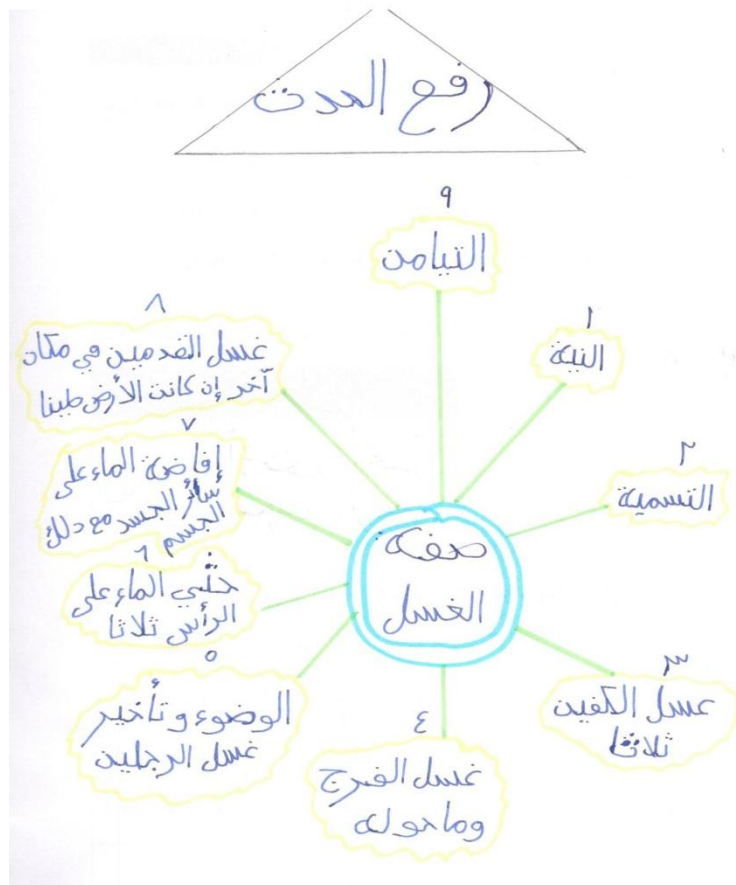 رفع الحدث
صفة
الغسل
١
النية
٢
التسمية
٣
غسل الكفين
ثلاثا
٤
غسل الفرج
وما حوله
٥
الوضوء وتأخير
غسل الرجلين
٦
حثي الماء على
الرأس ثلاثا
٧
إفاضة الماء على
سائر الجسد مع دلك
الجسم
٨
غسل القدمين في مكان
آخر إن كانت الأرض طينا
٩
التيامن